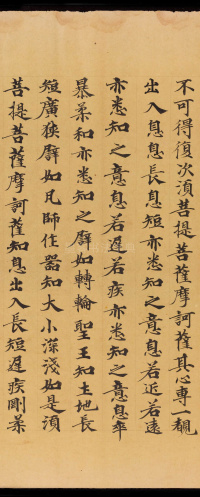 不可得復次湏菩提菩薩摩訶薩其心專一觀
出入息息長息短亦悉知之意息若近若遠
亦悉知之意息若遲若疾亦悉知之意息卒
暴柔和亦悉知之譬如轉輪聖王知土地長
短廣狹譬如凡師住器知大小深淺如是湏
菩提菩薩摩訶薩知息出入長短遲疾剛柔